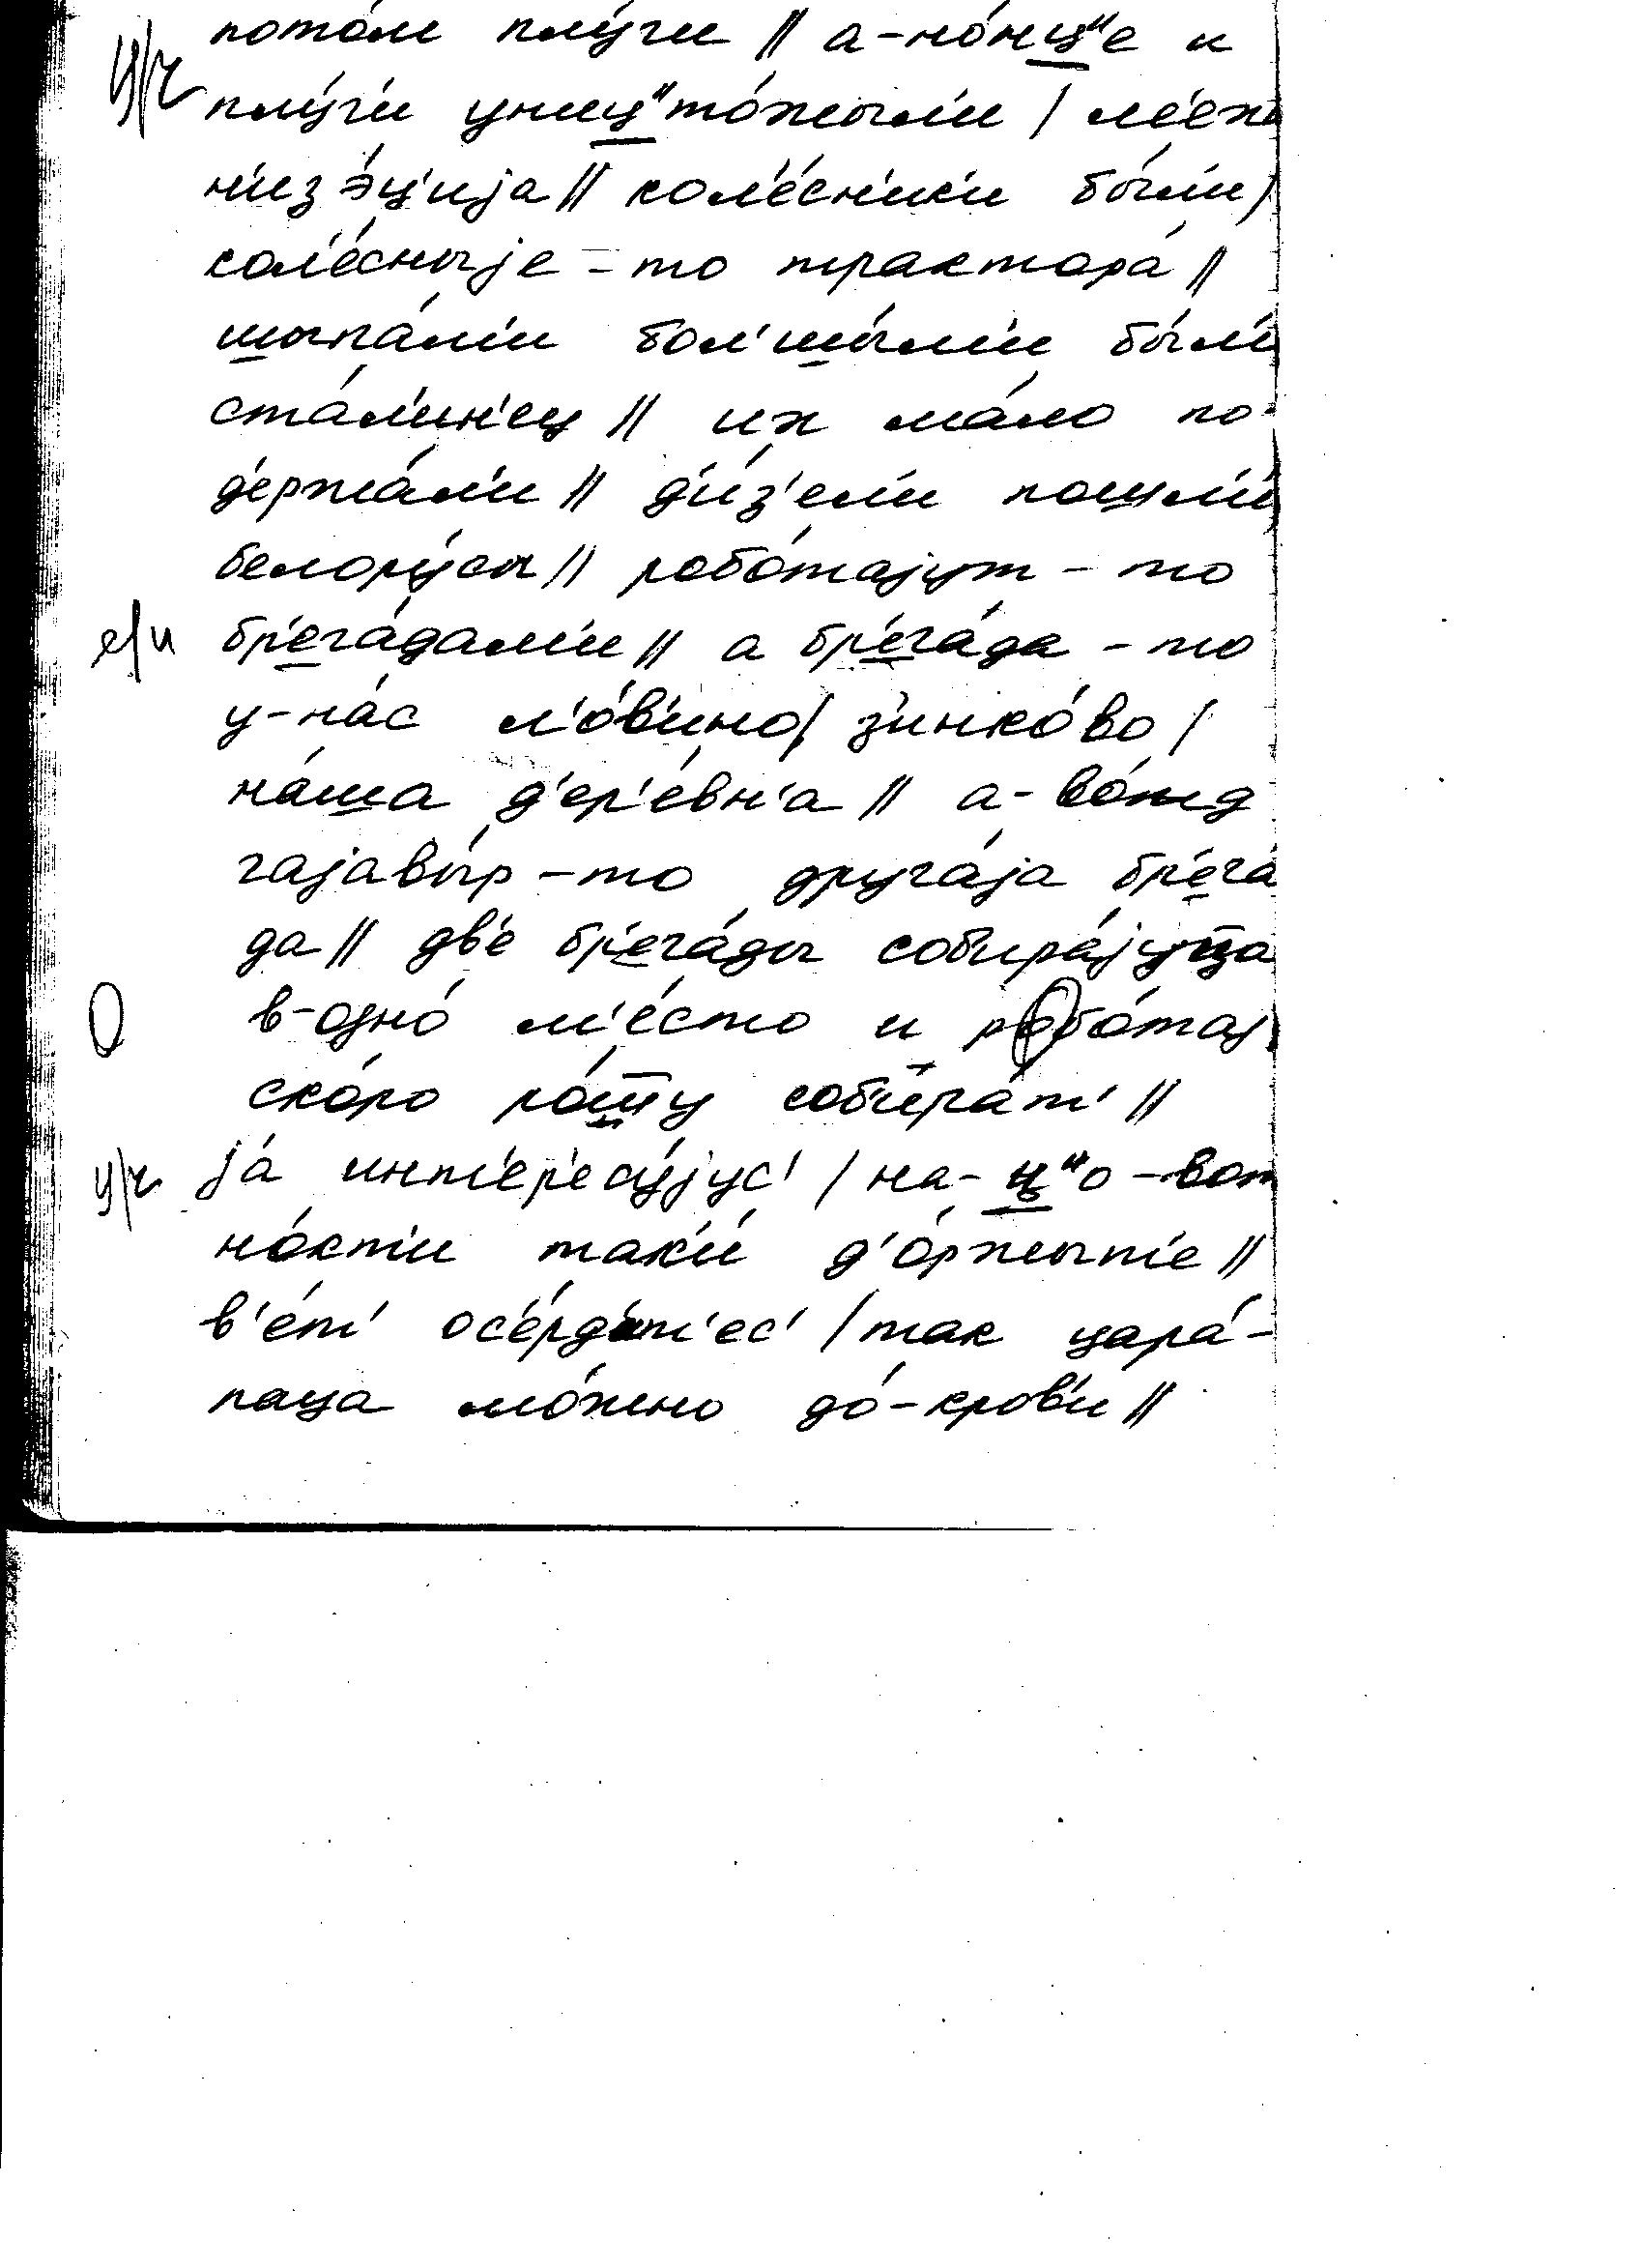 пото́м плу́ги || а-но́нц"е и
ц/ч плу́г'и униц"то́жыл'и / м'еха
н'иза́ц'ија || кол'е́с'н'ик'и бы́л'и /
кол'е́сныје-то трактора́ ||
шыпа́м'и бол'шы́м'и бы́л'и
ста́л'ин'ец || их ма́ло по-
д'ержа́л'и || д'и́з'ел'и пошл'и́
белору́сы || робо́тајут-то
е/и бр'ега́дам'и || а бр'ега́да-то
у-на́с л'о́в'ино / з'инко́во /
на́ша д'ер'е́вн'а || а-
гајавы́р-то друга́ја бр'ега́
да || дв'е бр'ега́ды собира́јуц̄а
О в-одно́ м'е́сто и робо́тај
ско́ро ро́ш̄у соб'ира́т' ||
ц/ч ја́ инт'ер'есу́јус' / на-ц"о-вот
но́кт'и так'и́ д'о́ржыт'е ||
в'е́т' ос'е́рд'ит'ес' / так цара́-
паца мо́жно до́-кров'и ||